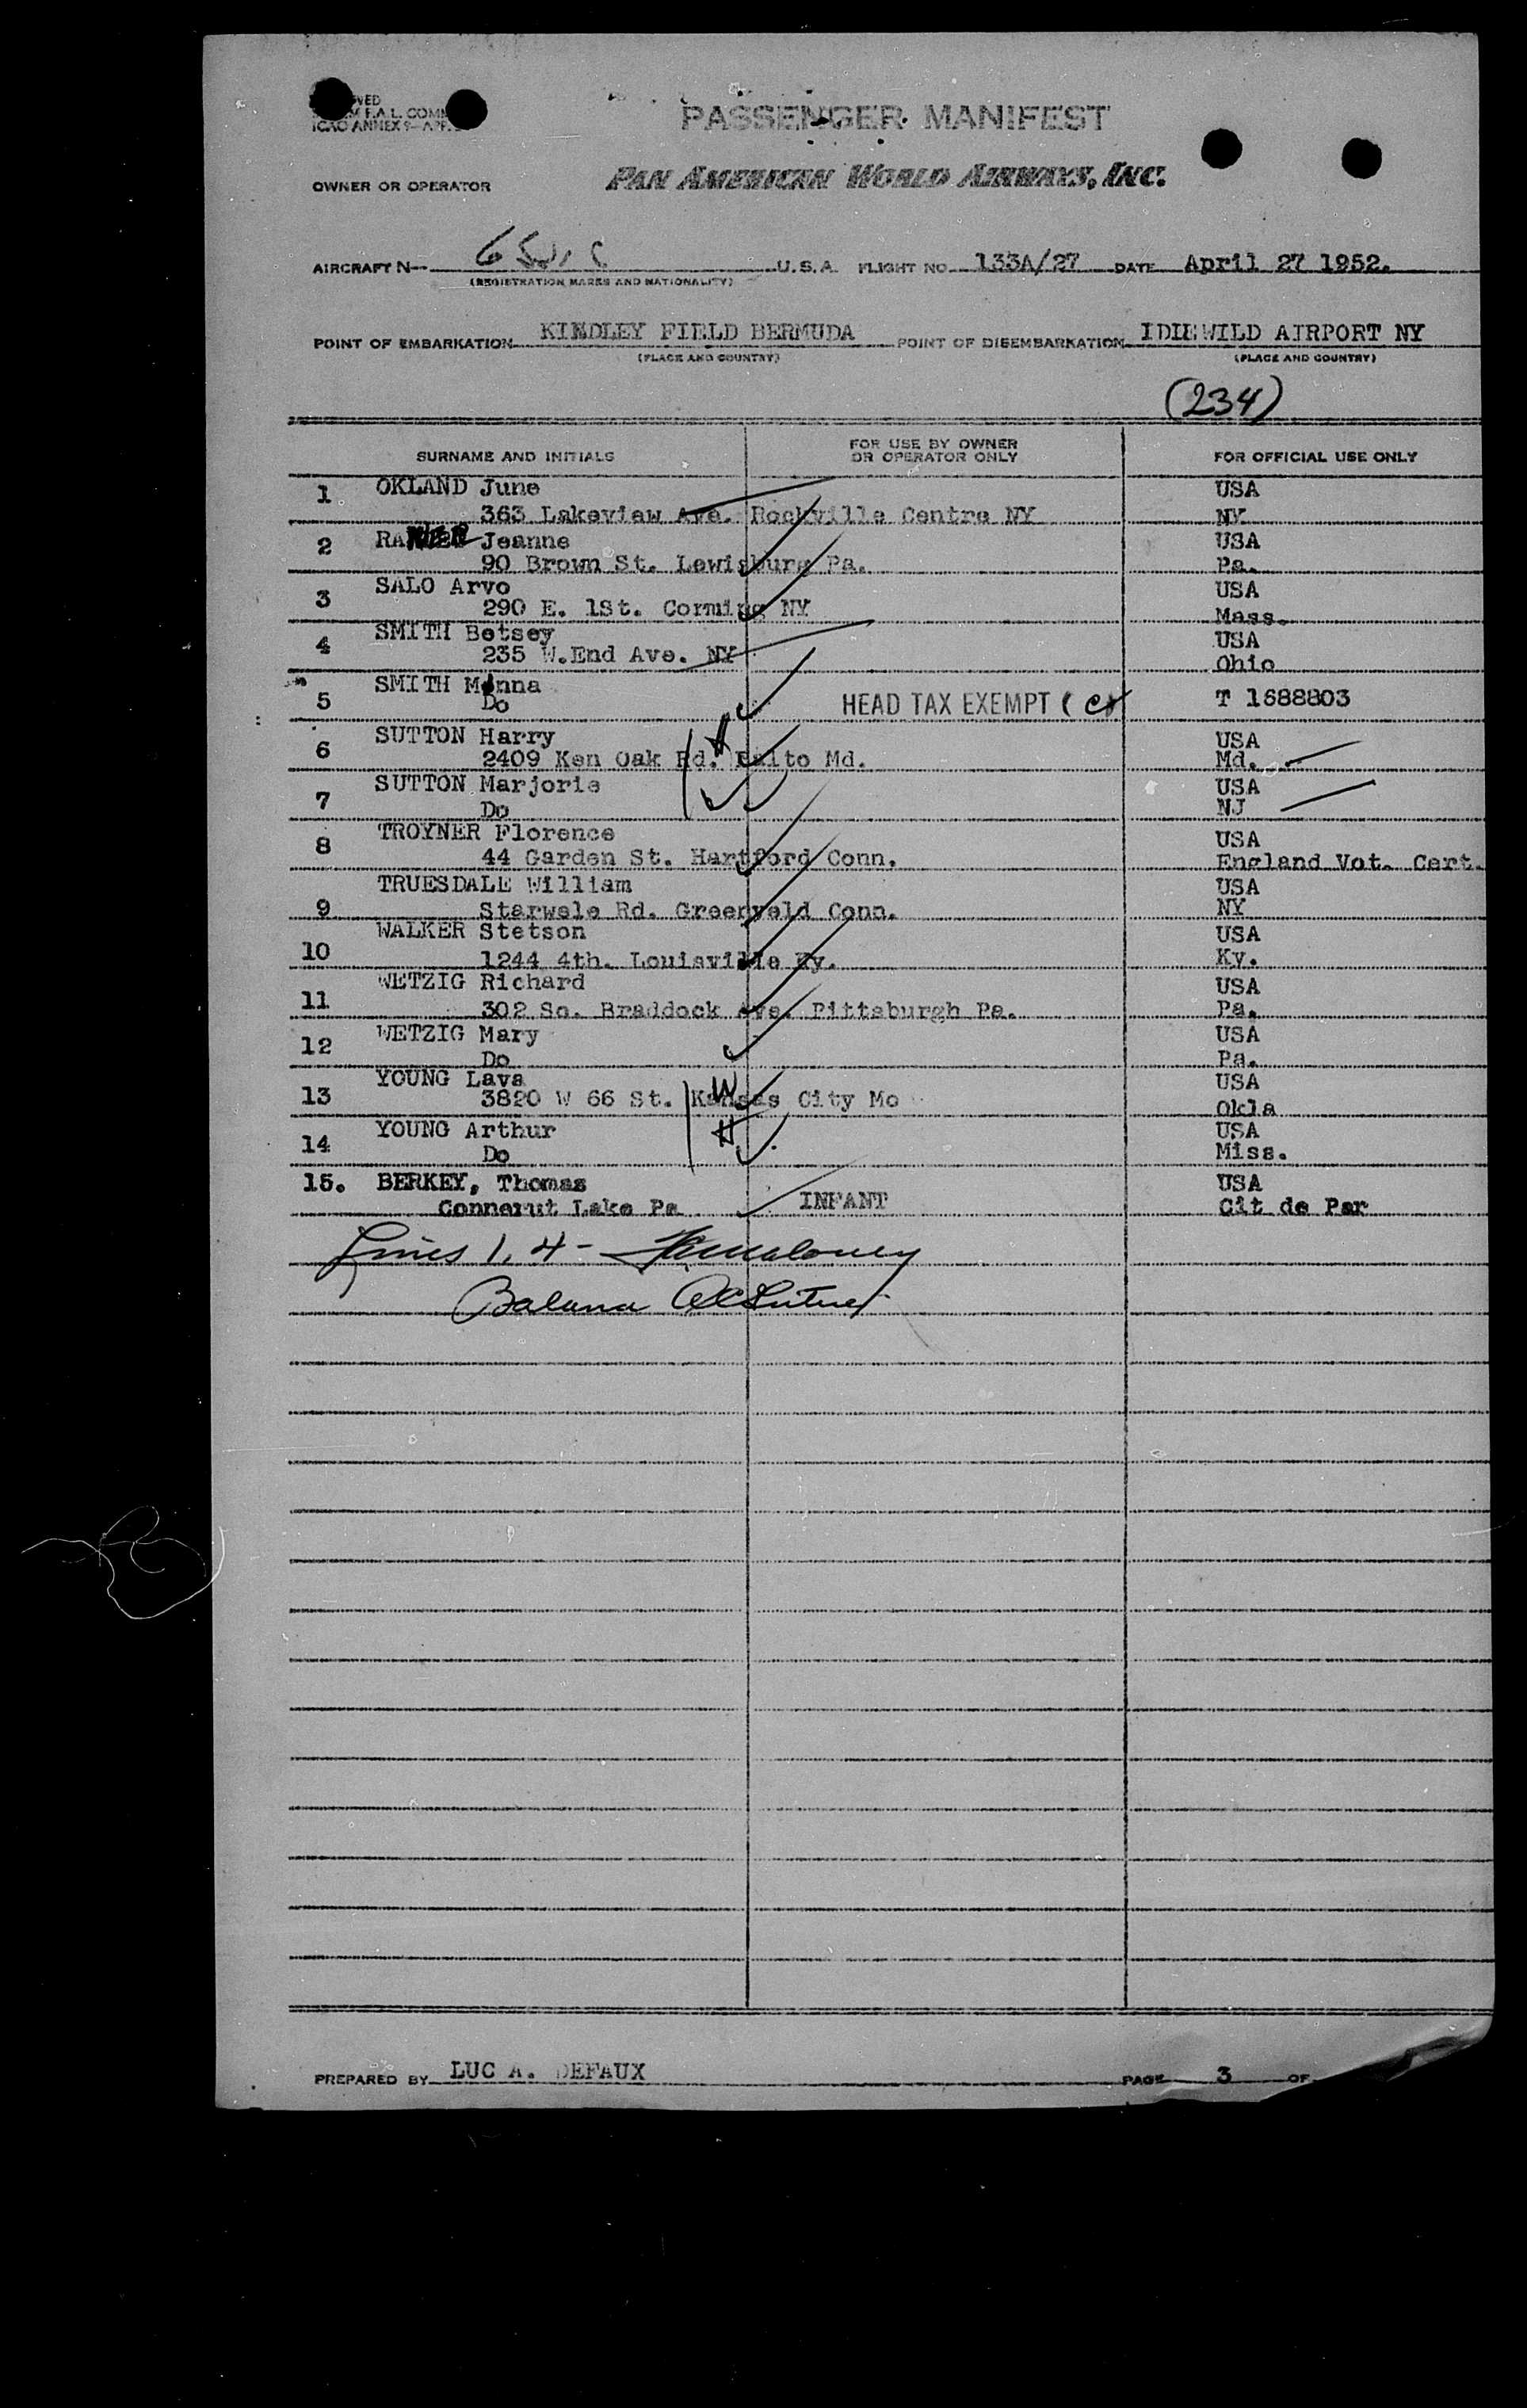 PASSENGER MANIFEST
ICAO ANNEX 9-APP.
OWNER OR OPERATOR PAN AMERICAN WORLD AIRWAYS, INC.
AIRCRAFT N- U.S.A. FLIGHT NO. 133A/27 DATE April 27 1952.
(REGISTRATION MARKS AND NATIONALITY)
POINT OF EMBARKATION KINDLEY FIELD BERMUDA POINT OF DISEMBARKATION IDLEWILD AIRPORT NY
(PLACE AND COUNTRY) (PLACE AND COUNTRY)
(234)
SURNAME AND INITIALS FOR USE BY OWNER OR OPERATOR ONLY FOR OFFICIAL USE ONLY
1 OKLAND June USA
363 Lakeview Ave. Rockville Centre NY NY
2 Jeanne USA
90 Brown St. Lewisburg Pa. Pa.
3 SALO Arvo USA
290 E. 1St. Corning NY Mass.
4 SMITH Betsey USA
235 W.End Ave. NY Ohio
5 SMITH Minna
Do HEAD TAX EXEMPT T 1688803
6 SUTTON Harry H USA
2409 Ken Oak Rd. Balto Md. Md.
7 SUTTON Marjorie USA
Do NJ
8 TROYNER Florence USA
44 Garden St. Hartford Conn. England Vot. Cert.
9 TRUESDALE William USA
Rd. Conn. NY
10 WALKER Stetson USA
1244 4th. Louisville Ky. Ky.
11 WETZIG Richard USA
302 So. Braddock Ave. Pittsburgh Pa. Pa.
12 WETZIG Mary USA
Do Pa.
13 YOUNG Lava W USA
3820 W 66 St. Kansas City Mo Okla
14 YOUNG Arthur H USA
Do Miss.
15. BERKEY, Thomas USA
Connerut Lake Pa INFANT Cit de Par
Lines 1, 4 -
PREPARED BY LUC A. DEFAUX PAGE 3 OF